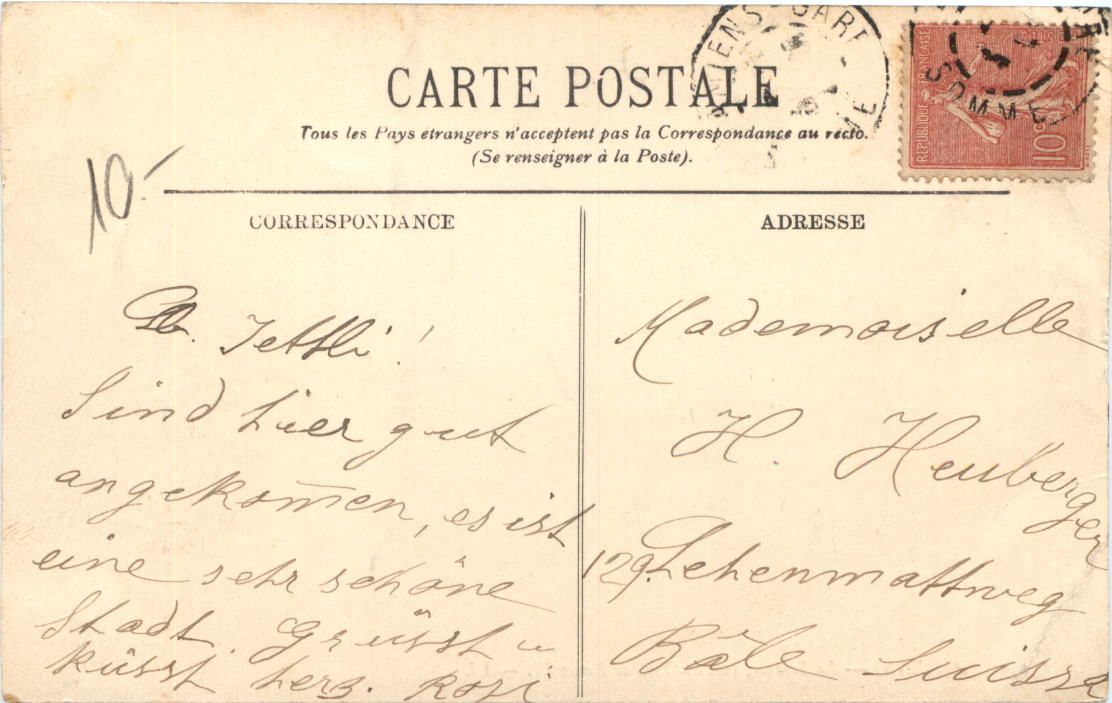 CARTE POSTALE
Tous les Pays etrangers n'acceptent pas la Correspondance au recto.
(Se renseigner à la Poste).
AMIENS-GARE
SOMME
REPUBLIQUE FRANÇAISE
10c
10.-
CORRESPONDANCE
Lb. Jettli!
Sind hier gut
angekom̄en, es ist
eine sehr schöne
Stadt. Grüsst u
küsst herz. Rosi
ADRESSE
Mademoiselle
H. Heuberger
129. Lehenmattweg
Bâle Suisse